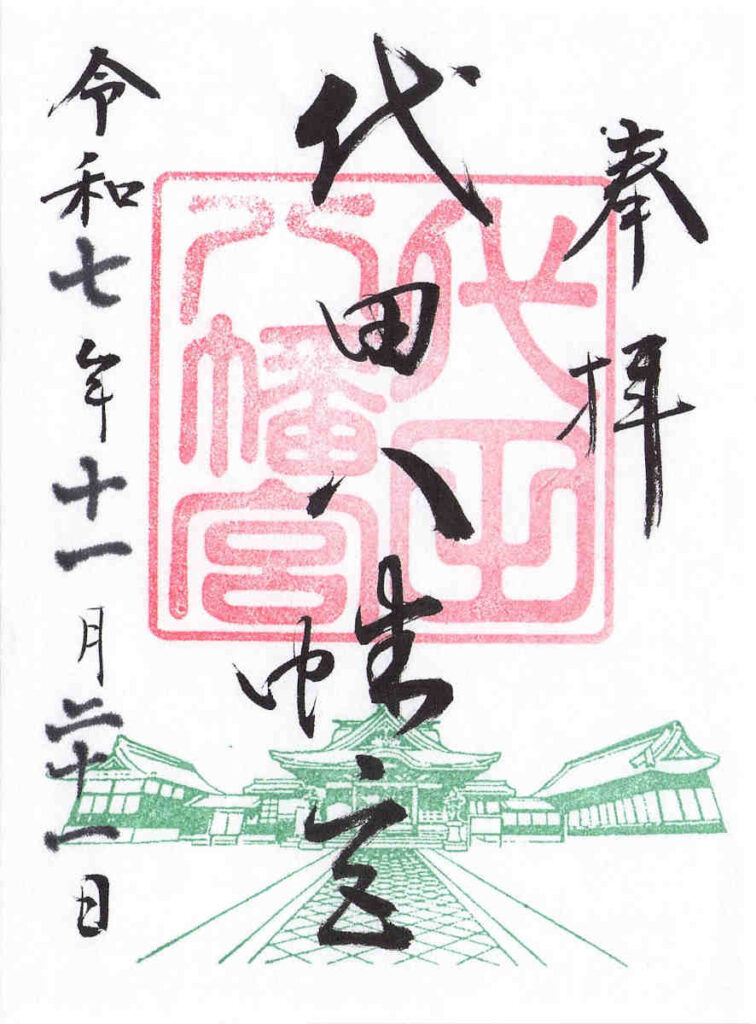 奉拝
代田八幡宮
代田
八幡宮
令和七年十一月二十一日